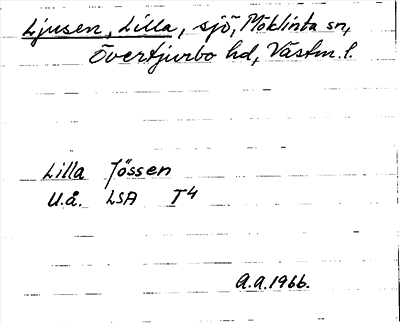 Ljusen, Lilla, sjö, Möklinta sn,
Övertjurbo hd, Västm. l.
Lilla Jössen
U.å. LSA T4
A.A.1966.